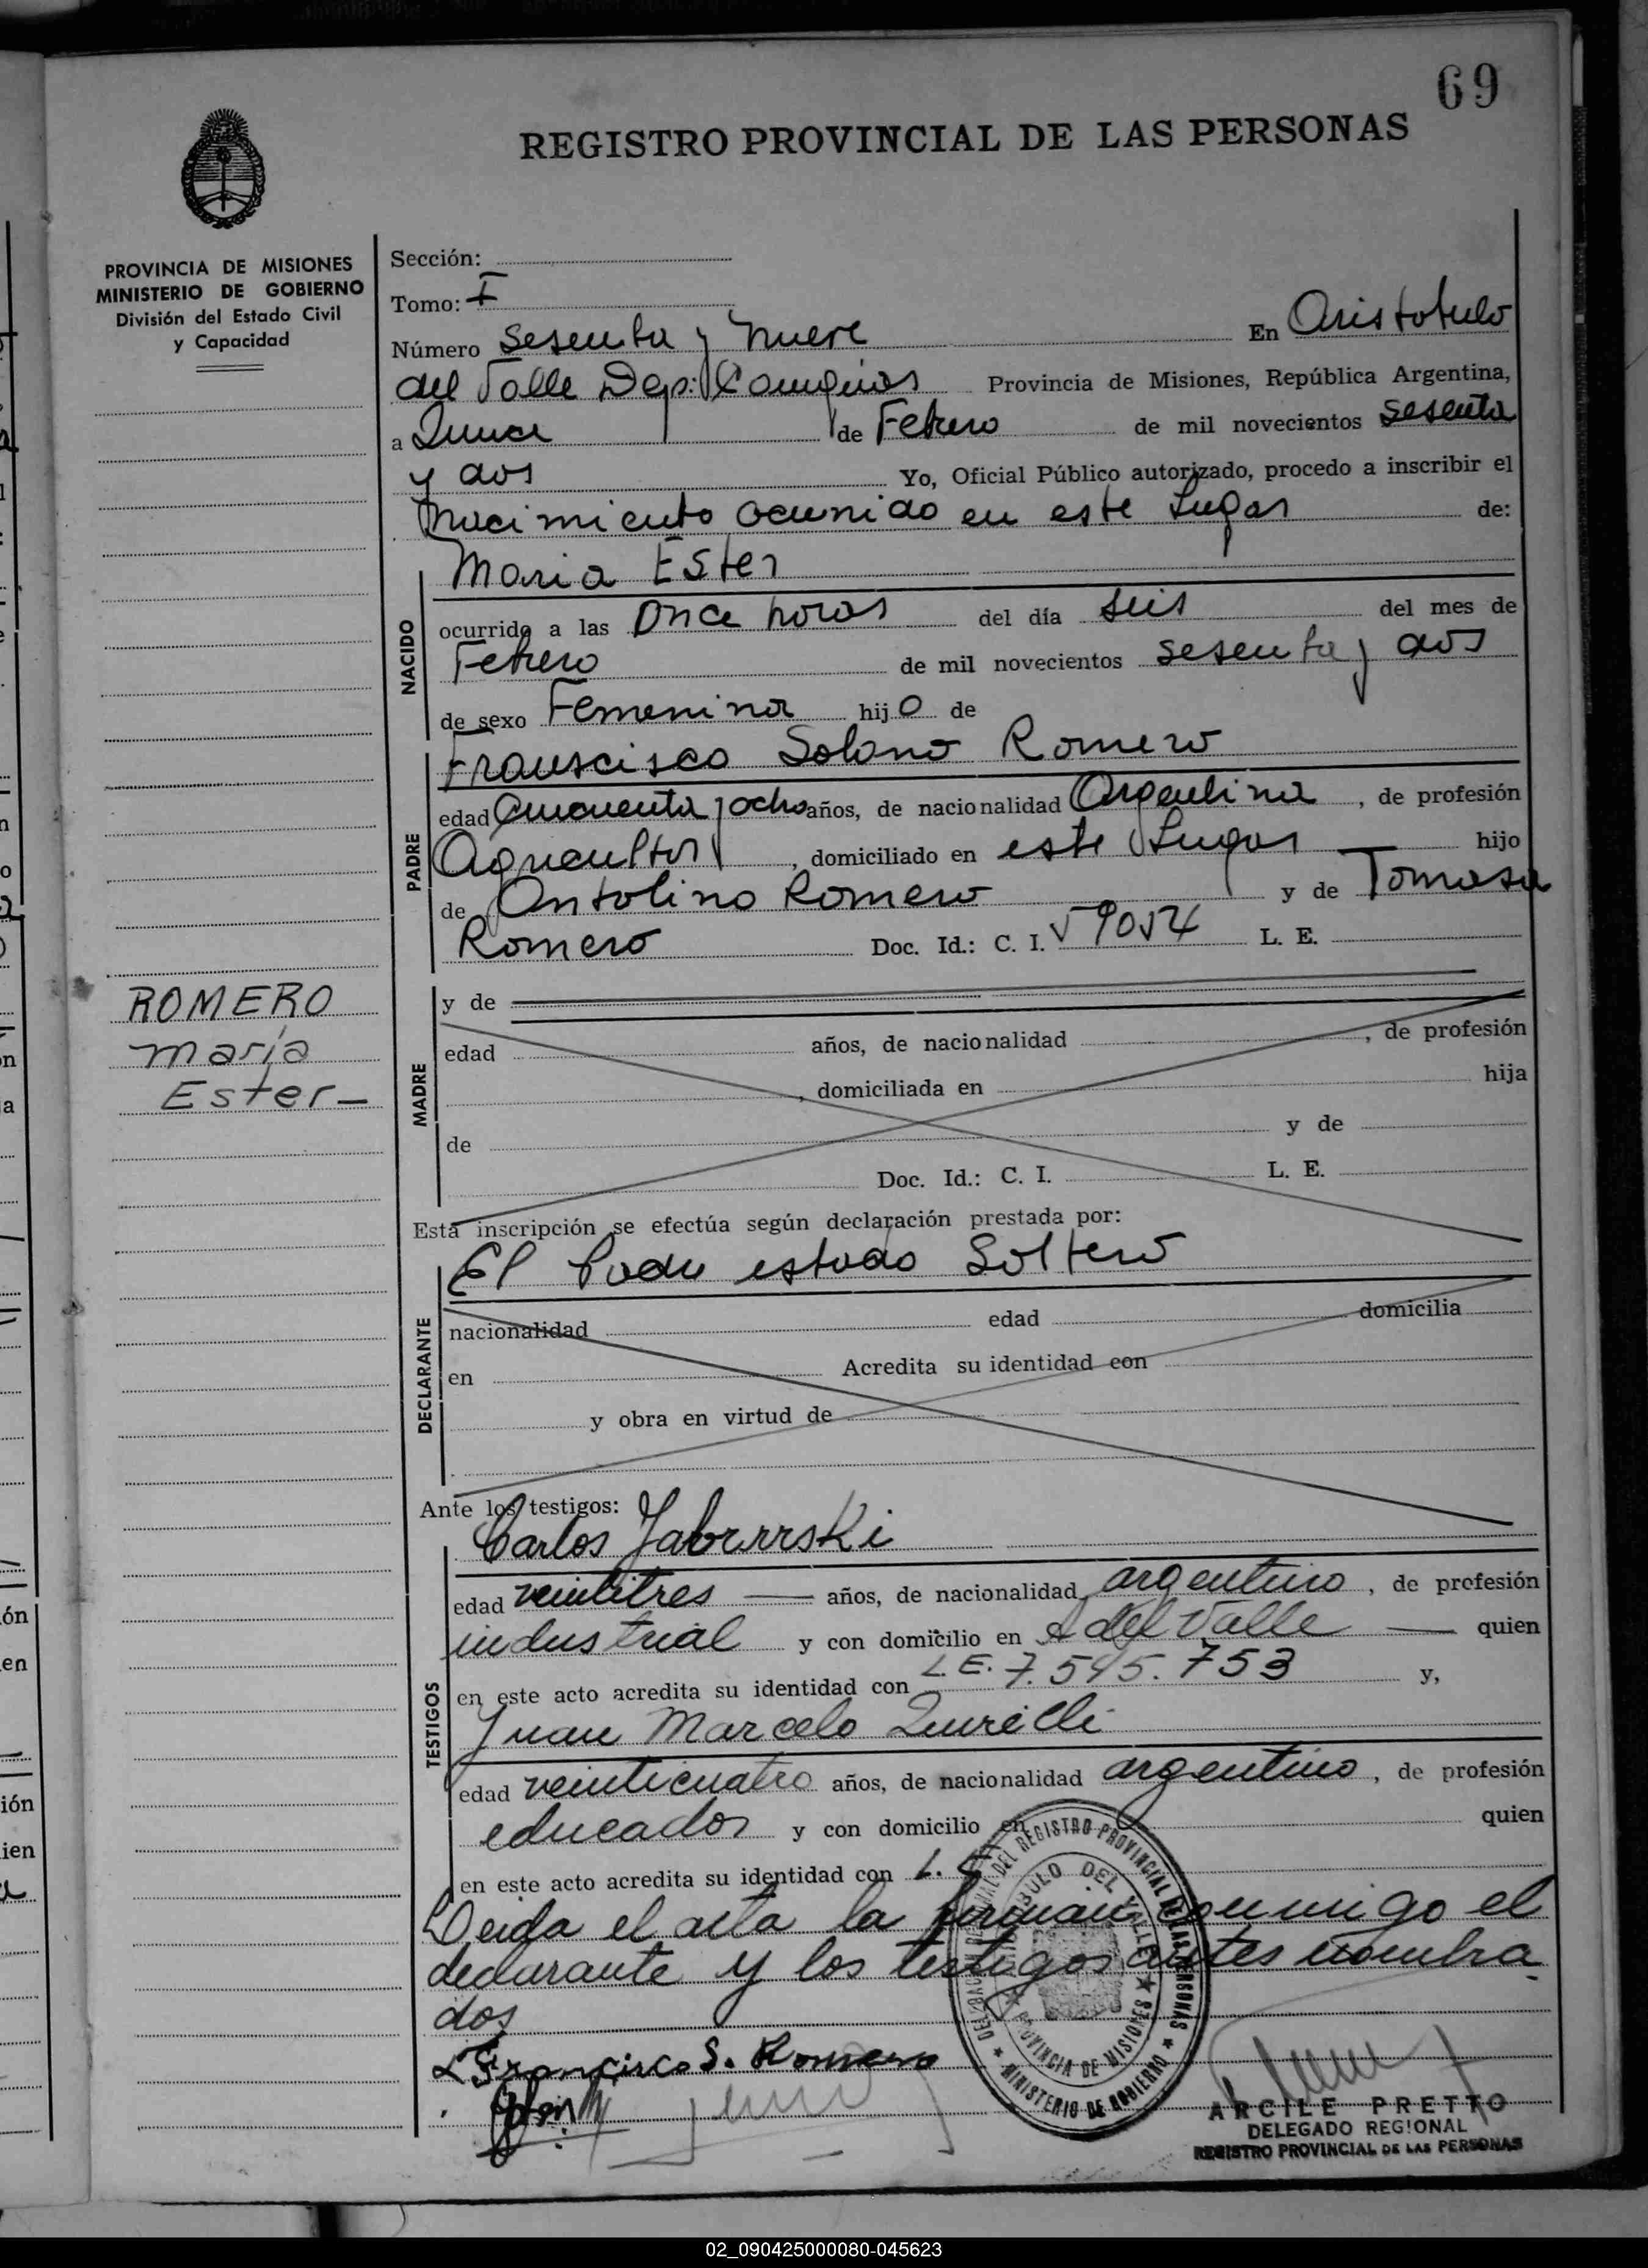 69
REGISTRO PROVINCIAL DE LAS PERSONAS
PROVINCIA DE MISIONES
MINISTERIO DE GOBIERNO
División del Estado Civil
y Capacidad
Sección:
Tomo: I
Número Sesenta y nueve En Aristobulo
del Valle Dep: Cainguas Provincia de Misiones, República Argentina,
a Quince de Febrero de mil novecientos sesenta
y dos Yo, Oficial Público autorizado, procedo a inscribir el
nacimiento ocurrido en este Lugar de:
Maria Ester
NACIDO
ocurrido a las Once horas del día seis del mes de
Febrero de mil novecientos sesenta y dos
de sexo Femenina hijo de
Frauscisco Solano Romero
PADRE
edad Cincuenta y ocho años, de nacionalidad Argentina, de profesión
Agricultor, domiciliado en este Lugar hijo
de Antolino Romero y de Tomasa
Romero Doc. Id.: C. I. 59054 L. E.
ROMERO
maría
Ester-
MADRE
y de
edad años, de nacionalidad, de profesión
, domiciliada en hija
de y de
Doc. Id.: C. I. L. E.
Esta inscripción se efectúa según declaración prestada por:
El Padre estado Soltero
DECLARANTE
nacionalidad edad domicilia
en Acredita su identidad con
y obra en virtud de
Ante los testigos:
Carlos
TESTIGOS
edad veintitres — años, de nacionalidad argentino, de profesión
industrial y con domicilio en A del Valle — quien
en este acto acredita su identidad con L.E. 7.545.753 y,
Juan Marcelo
edad veinticuatro años, de nacionalidad argentino, de profesión
educador y con domicilio en quien
en este acto acredita su identidad con L.E.
Leida el acta la firman conmigo el
declarante y los testigos antes nombra
dos
Francisco S. Romero
DELEGACION REGIONAL DEL REGISTRO PROVINCIAL DE LAS PERSONAS
MINISTERIO DE GOBIERNO
ARISTOBULO DEL VALLE
PROVINCIA DE MISIONES
ARCILE PRETTO
DELEGADO REGIONAL
REGISTRO PROVINCIAL DE LAS PERSONAS
02_090425000080-045623